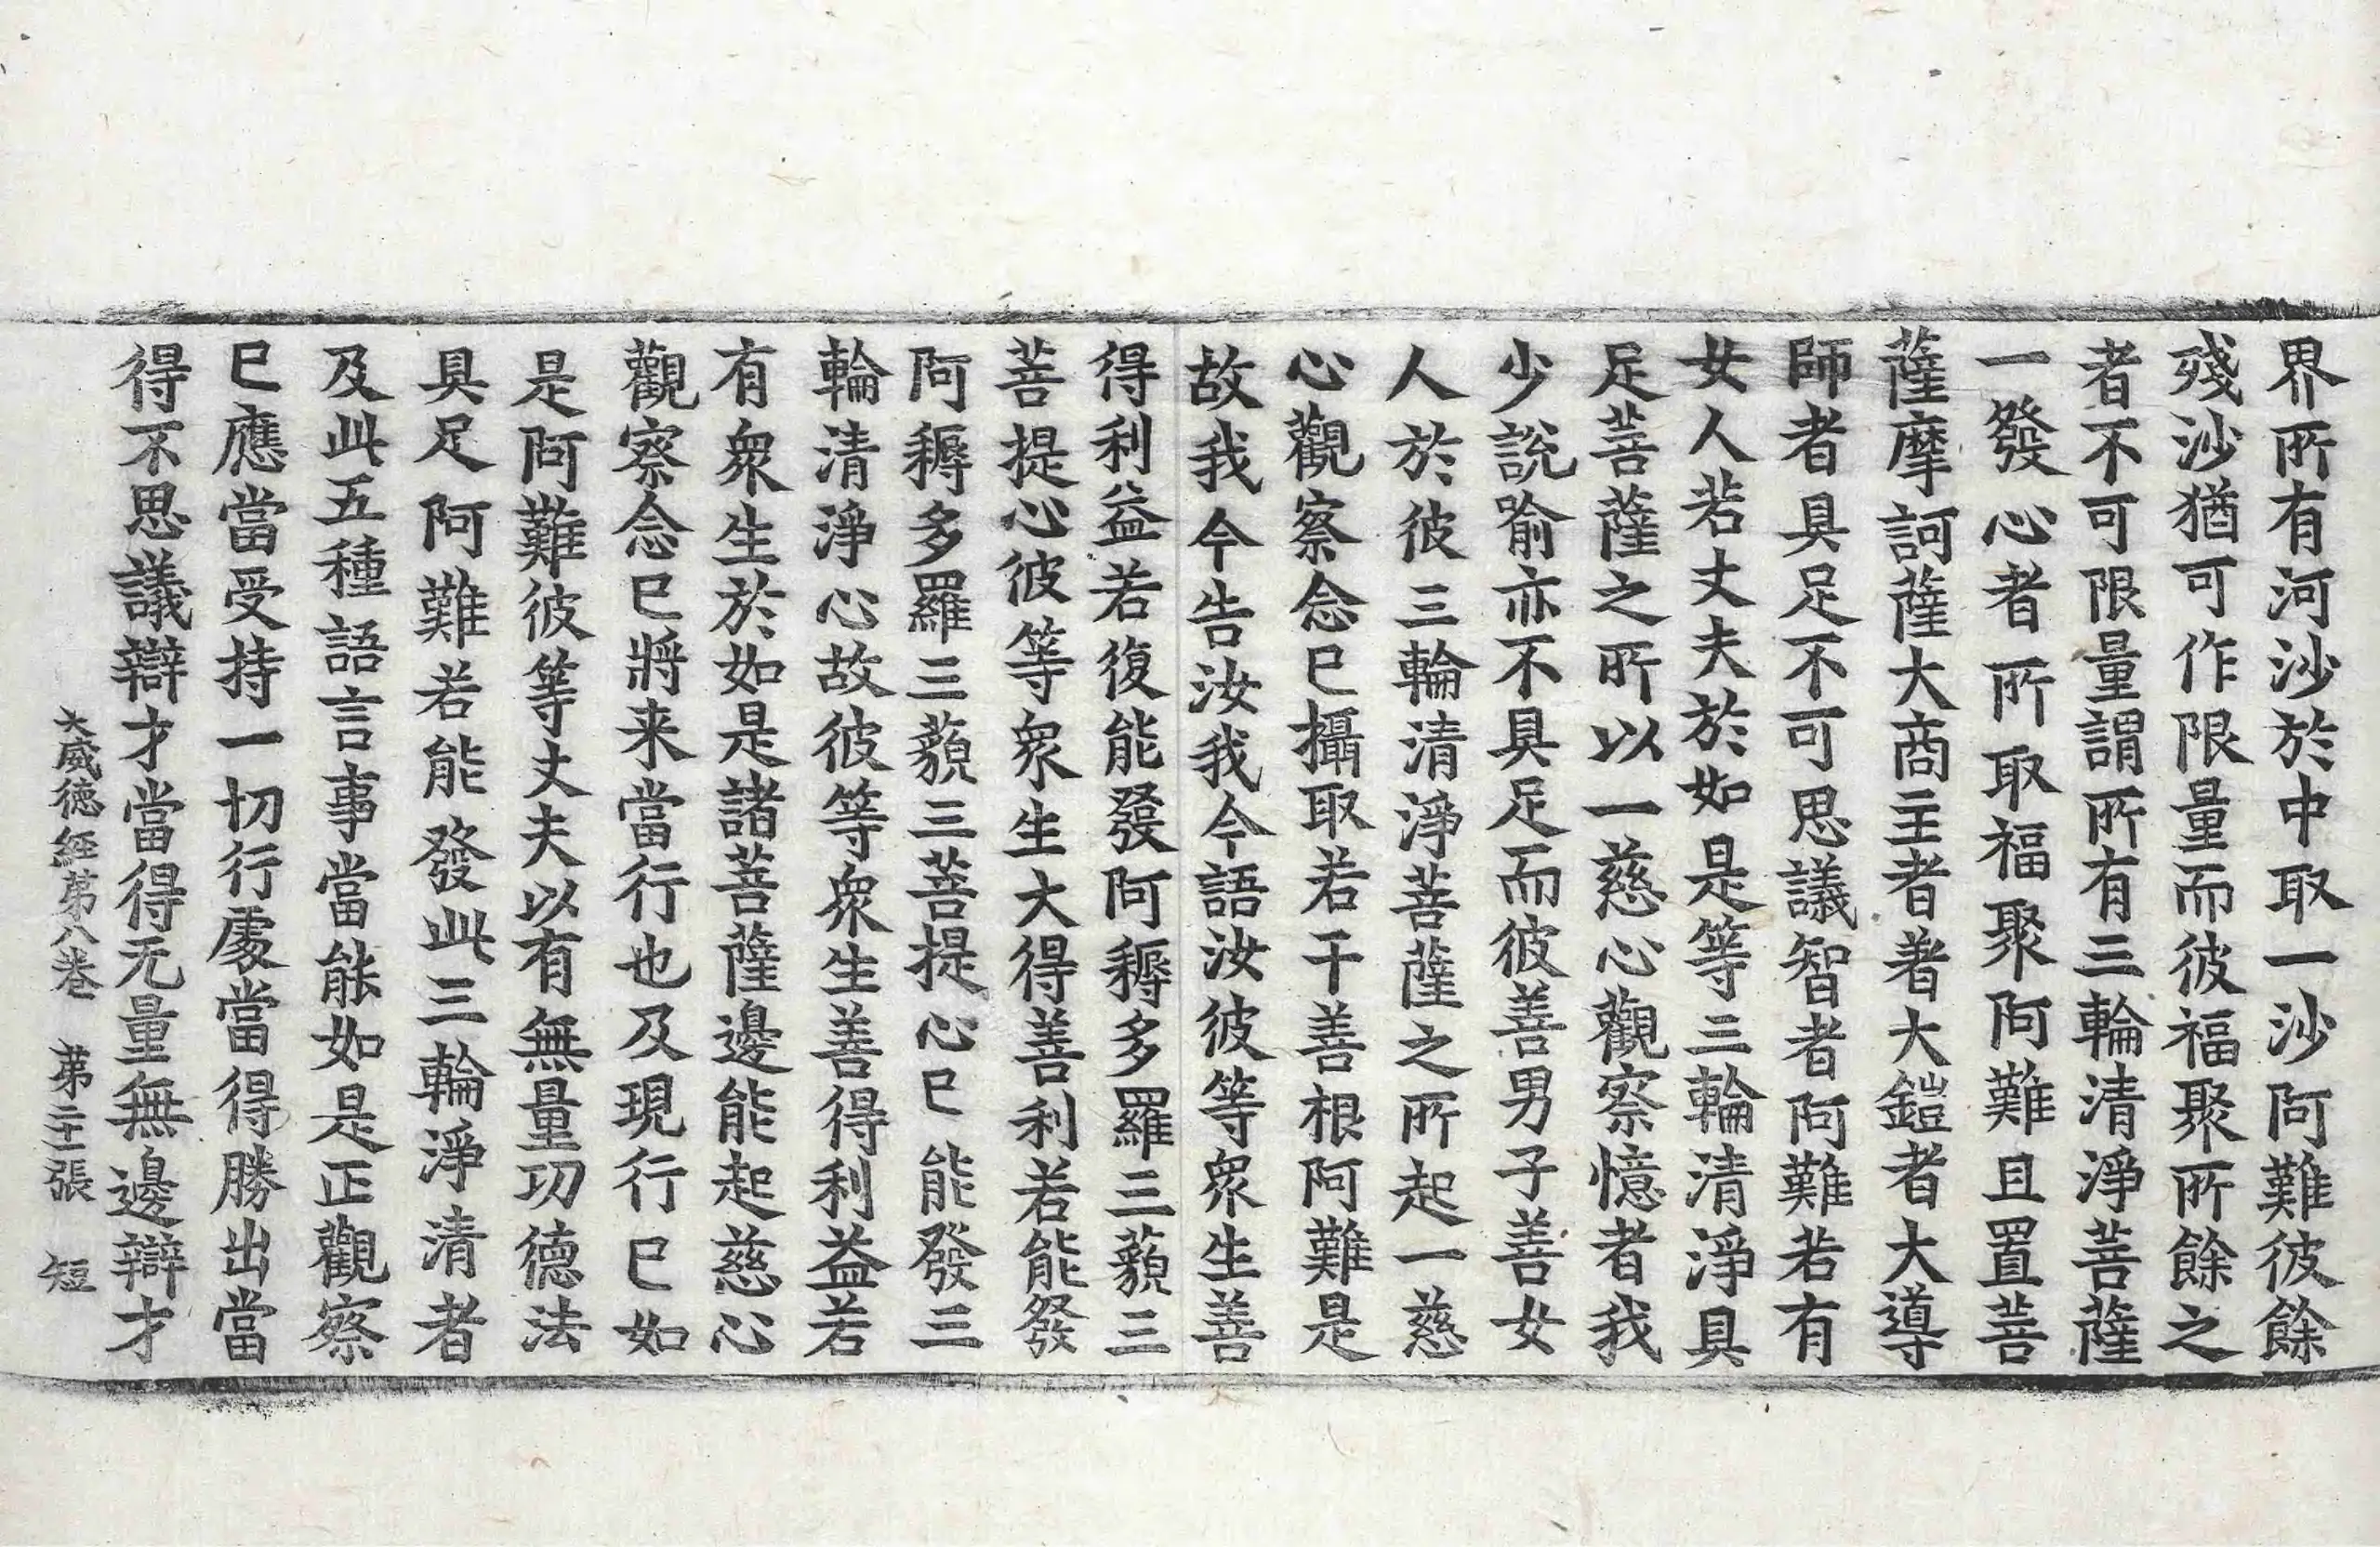 界所有河沙於中取一沙阿難彼餘
殘沙猶可作限量而彼福聚所餘之
者不可限量謂所有三輪清淨菩薩
一發心者所取福聚阿難且置菩
薩摩訶薩大商主者著大鎧者大導
師者具足不可思議智者阿難若有
女人若丈夫於如是等三輪清淨具
足菩薩之所以一慈心觀察憶者我
少說喻亦不具足而彼善男子善女
人於彼三輪清淨菩薩之所起一慈
心觀察念已攝取若干善根阿難是
故我今告汝我今語汝彼等衆生善
得利益若復能發阿耨多羅三藐三
菩提心彼等衆生大得善利若能發
阿耨多羅三藐三菩提心已能發三
輪清淨心故彼等衆生善得利益若
有衆生於如是諸菩薩邊能起慈心
觀察念已將来當行也及現行已如
是阿難彼等丈夫以有無量功德法
具足阿難若能發此三輪淨清者
及此五種語言事當能如是正觀察
已應當受持一切行處當得勝出當
得不思議辯才當得无量無邊辯才
大威德經第八卷　第二十一張　短